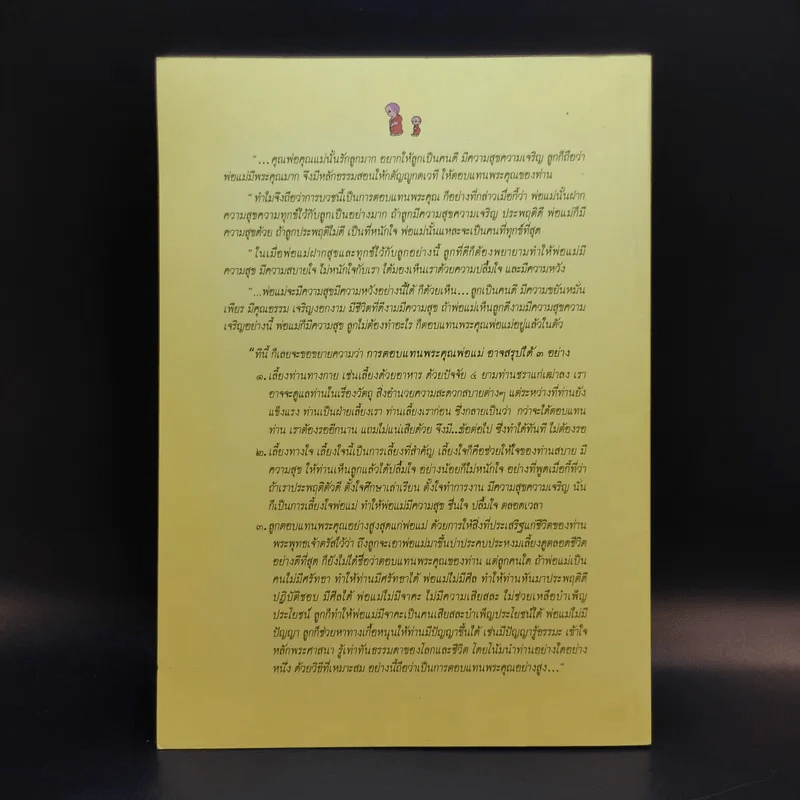 "...คุณพ่อคุณแม่นั้นรักลูกมาก อยากให้ลูกเป็นคนดี มีความสุขความเจริญ ลูกก็ถือว่า
พ่อแม่มีพระคุณมาก จึงมีหลักธรรมสอนให้กตัญญูกตเวที ให้ตอบแทนพระคุณของท่าน
"ทำไมจึงถือว่าการบวชนี้เป็นการตอบแทนพระคุณ ก็อย่างที่กล่าวเมื่อกี้ว่า พ่อแม่นั้นฝาก
ความสุขความทุกข์ไว้กับลูกเป็นอย่างมาก ถ้าลูกมีความสุขความเจริญ ประพฤติดี พ่อแม่ก็มี
ความสุขด้วย ถ้าลูกประพฤติไม่ดี เป็นที่หนักใจ พ่อแม่นั้นแหละจะเป็นคนที่ทุกข์ที่สุด
"ในเมื่อพ่อแม่ฝากสุขและทุกข์ไว้กับลูกอย่างนี้ ลูกที่ดีก็ต้องพยายามทำให้พ่อแม่มี
ความสุข มีความสบายใจ ไม่หนักใจกับเรา ได้มองเห็นเราด้วยความปลื้มใจ และมีความหวัง
"...พ่อแม่จะมีความสุขมีความหวังอย่างนี้ได้ ก็ด้วยเห็น...ลูกเป็นคนดี มีความขยันหมั่น
เพียร มีคุณธรรม เจริญงอกงาม มีชีวิตที่ดีงามมีความสุข ถ้าพ่อแม่เห็นลูกดีงามมีความสุขความ
เจริญอย่างนี้ พ่อแม่ก็มีความสุข ลูกไม่ต้องทำอะไร ก็ตอบแทนพระคุณพ่อแม่อยู่แล้วในตัว
"ทีนี้ ก็เลยจะขอขยายความว่า การตอบแทนพระคุณพ่อแม่ อาจสรุปได้ ๓ อย่าง
๑. เลี้ยงท่านทางกาย เช่นเลี้ยงด้วยอาหาร ด้วยปัจจัย ๔ ยามท่านชราแก่เฒ่าลง เรา
อาจจะดูแลท่านในเรื่องวัตถุ สิ่งอำนวยความสะดวกสบายต่างๆ แต่ระหว่างที่ท่านยัง
แข็งแรง ท่านเป็นฝ่ายเลี้ยงเรา ท่านเลี้ยงเราก่อน ซึ่งกลายเป็นว่า กว่าจะได้ตอบแทน
ท่าน เราต้องรออีกนาน แถมไม่แน่เสียด้วย จึงมี...ข้อต่อไป ซึ่งทำได้ทันที ไม่ต้องรอ
๒. เลี้ยงทางใจ เลี้ยงใจนี้เป็นการเลี้ยงที่สำคัญ เลี้ยงใจก็คือช่วยให้ใจของท่านสบาย มี
ความสุข ให้ท่านเห็นลูกแล้วได้ปลื้มใจ อย่างน้อยก็ไม่หนักใจ อย่างที่พูดเมื่อกี้ที่ว่า
ถ้าเราประพฤติตัวดี ตั้งใจศึกษาเล่าเรียน ตั้งใจทำการงาน มีความสุขความเจริญ นั่น
ก็เป็นการเลี้ยงใจพ่อแม่ ทำให้พ่อแม่มีความสุข ชื่นใจ ปลื้มใจ ตลอดเวลา
๓. ลูกตอบแทนพระคุณอย่างสูงสุดแก่พ่อแม่ ด้วยการให้สิ่งที่ประเสริฐแก่ชีวิตของท่าน
พระพุทธเจ้าตรัสไว้ว่า ถึงลูกจะเอาพ่อแม่มาขึ้นบ่าประคบประหงมเลี้ยงดูตลอดชีวิต
อย่างดีที่สุด ก็ยังไม่ได้ชื่อว่าตอบแทนพระคุณของท่าน แต่ลูกคนใด ถ้าพ่อแม่เป็น
คนไม่มีศรัทธา ทำให้ท่านมีศรัทธาได้ พ่อแม่ไม่มีศีล ทำให้ท่านหันมาประพฤติดี
ปฏิบัติชอบ มีศีลได้ พ่อแม่ไม่มีจาคะ ไม่มีความเสียสละ ไม่ช่วยเหลือบำเพ็ญ
ประโยชน์ ลูกก็ทำให้พ่อแม่มีจาคะเป็นคนเสียสละบำเพ็ญประโยชน์ได้ พ่อแม่ไม่มี
ปัญญา ลูกก็ช่วยหาทางเกื้อหนุนให้ท่านมีปัญญาขึ้นได้ เช่นมีปัญญารู้ธรรมะ เข้าใจ
หลักพระศาสนา รู้เท่าทันธรรมดาของโลกและชีวิต โดยโน้มนำท่านอย่างใดอย่าง
หนึ่ง ด้วยวิธีที่เหมาะสม อย่างนี้ถือว่าเป็นการตอบแทนพระคุณอย่างสูง..."